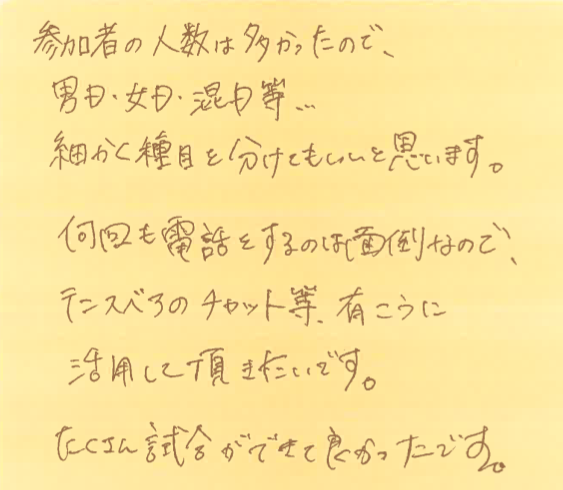 参加者の人数は多かったので、
男D・女D・混D等…
細かく種目を分けてもいいと思います。
何回も電話をするのは面倒なので、
テニスベアのチャット等、有こうに
活用して頂きたいです。
たくさん試合ができて良かったです。